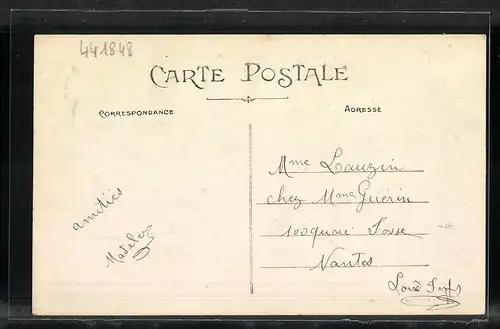 441848
CARTE POSTALE
CORRESPONDANCE
ADRESSE
Mme Lauzin
chez Mme Guérin
10 quai Fosse
Nantes
Loire Infre
amitiés